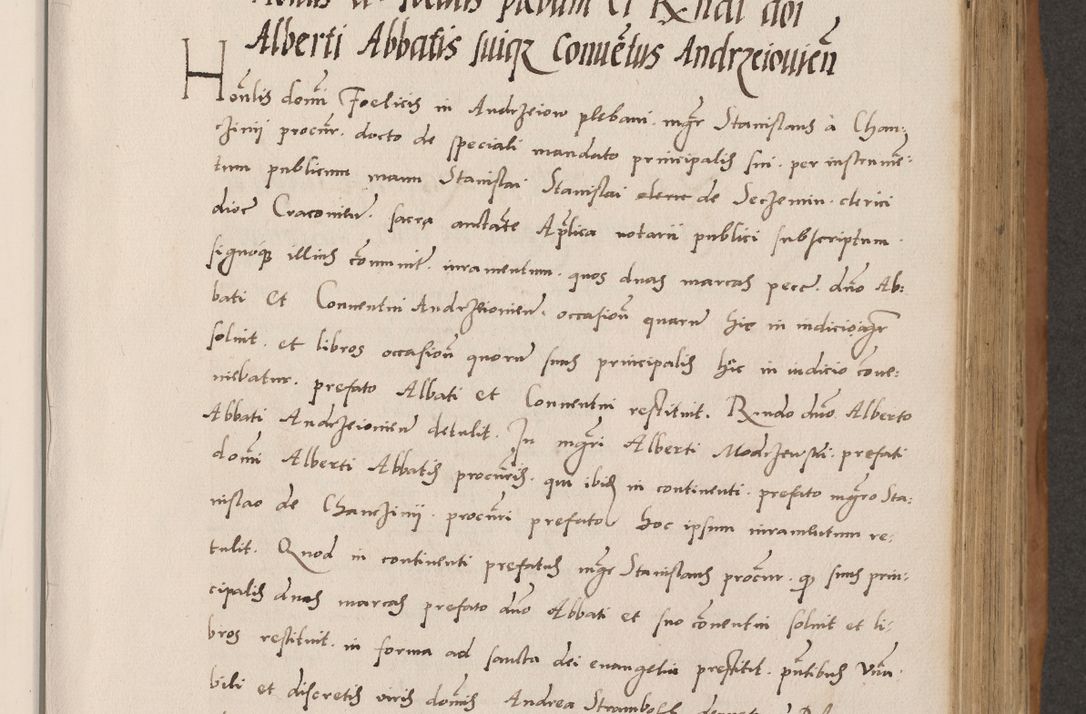 plebani et Rndi dni
Alberti Abbatis suiqȝ Conuētus Andrzeiouien̄
Honblis domī Foelicis in Andrzeiow plebani · mgr Stanislaus à Chan:
czinij procur̄ · docto de speciali mandato principalis sui · per instrume:
tum publicum manu Stanislai Stanislai cleric de Seczemin · clerici
dioc̄ Cracouien̄ · sacra auctāte Aplica notarii publici subscriptum ·
signoqȝ illius cōmunit̄ · iuramentum · quos duas marcas pecc̄ · dno Ab:
bati et Conuentui Andrzeiouien̄ · occasioni quaru hic in iudicio agr̄
soluit · et libros occasioni quoru suus principalis hic in iudicio cōue:
niebatur · prefato Abbati et Conuentui restituit · Rndo dno Alberto
Abbati Andrzeiouien̄ detulit · In mgri Alberti Modrzewski · prefati
domī Alberti Abbatis procuris · qui ibid in continenti · prefato mgro Sta:
nislao de Chanczinij · procuri prefato hoc ipsum iuramentum re:
tulit · Quod in continenti prefatus mgr Stanislaus procur̄ · qȝ suus prin:
cipalis duas marcas prefato dno Abbati et suo cōuentui soluit et li:
bros restituit · in forma ad sancta dei euangelia prestitit · pntibus Vnn ·
bili et discretis viris domīs Andrea